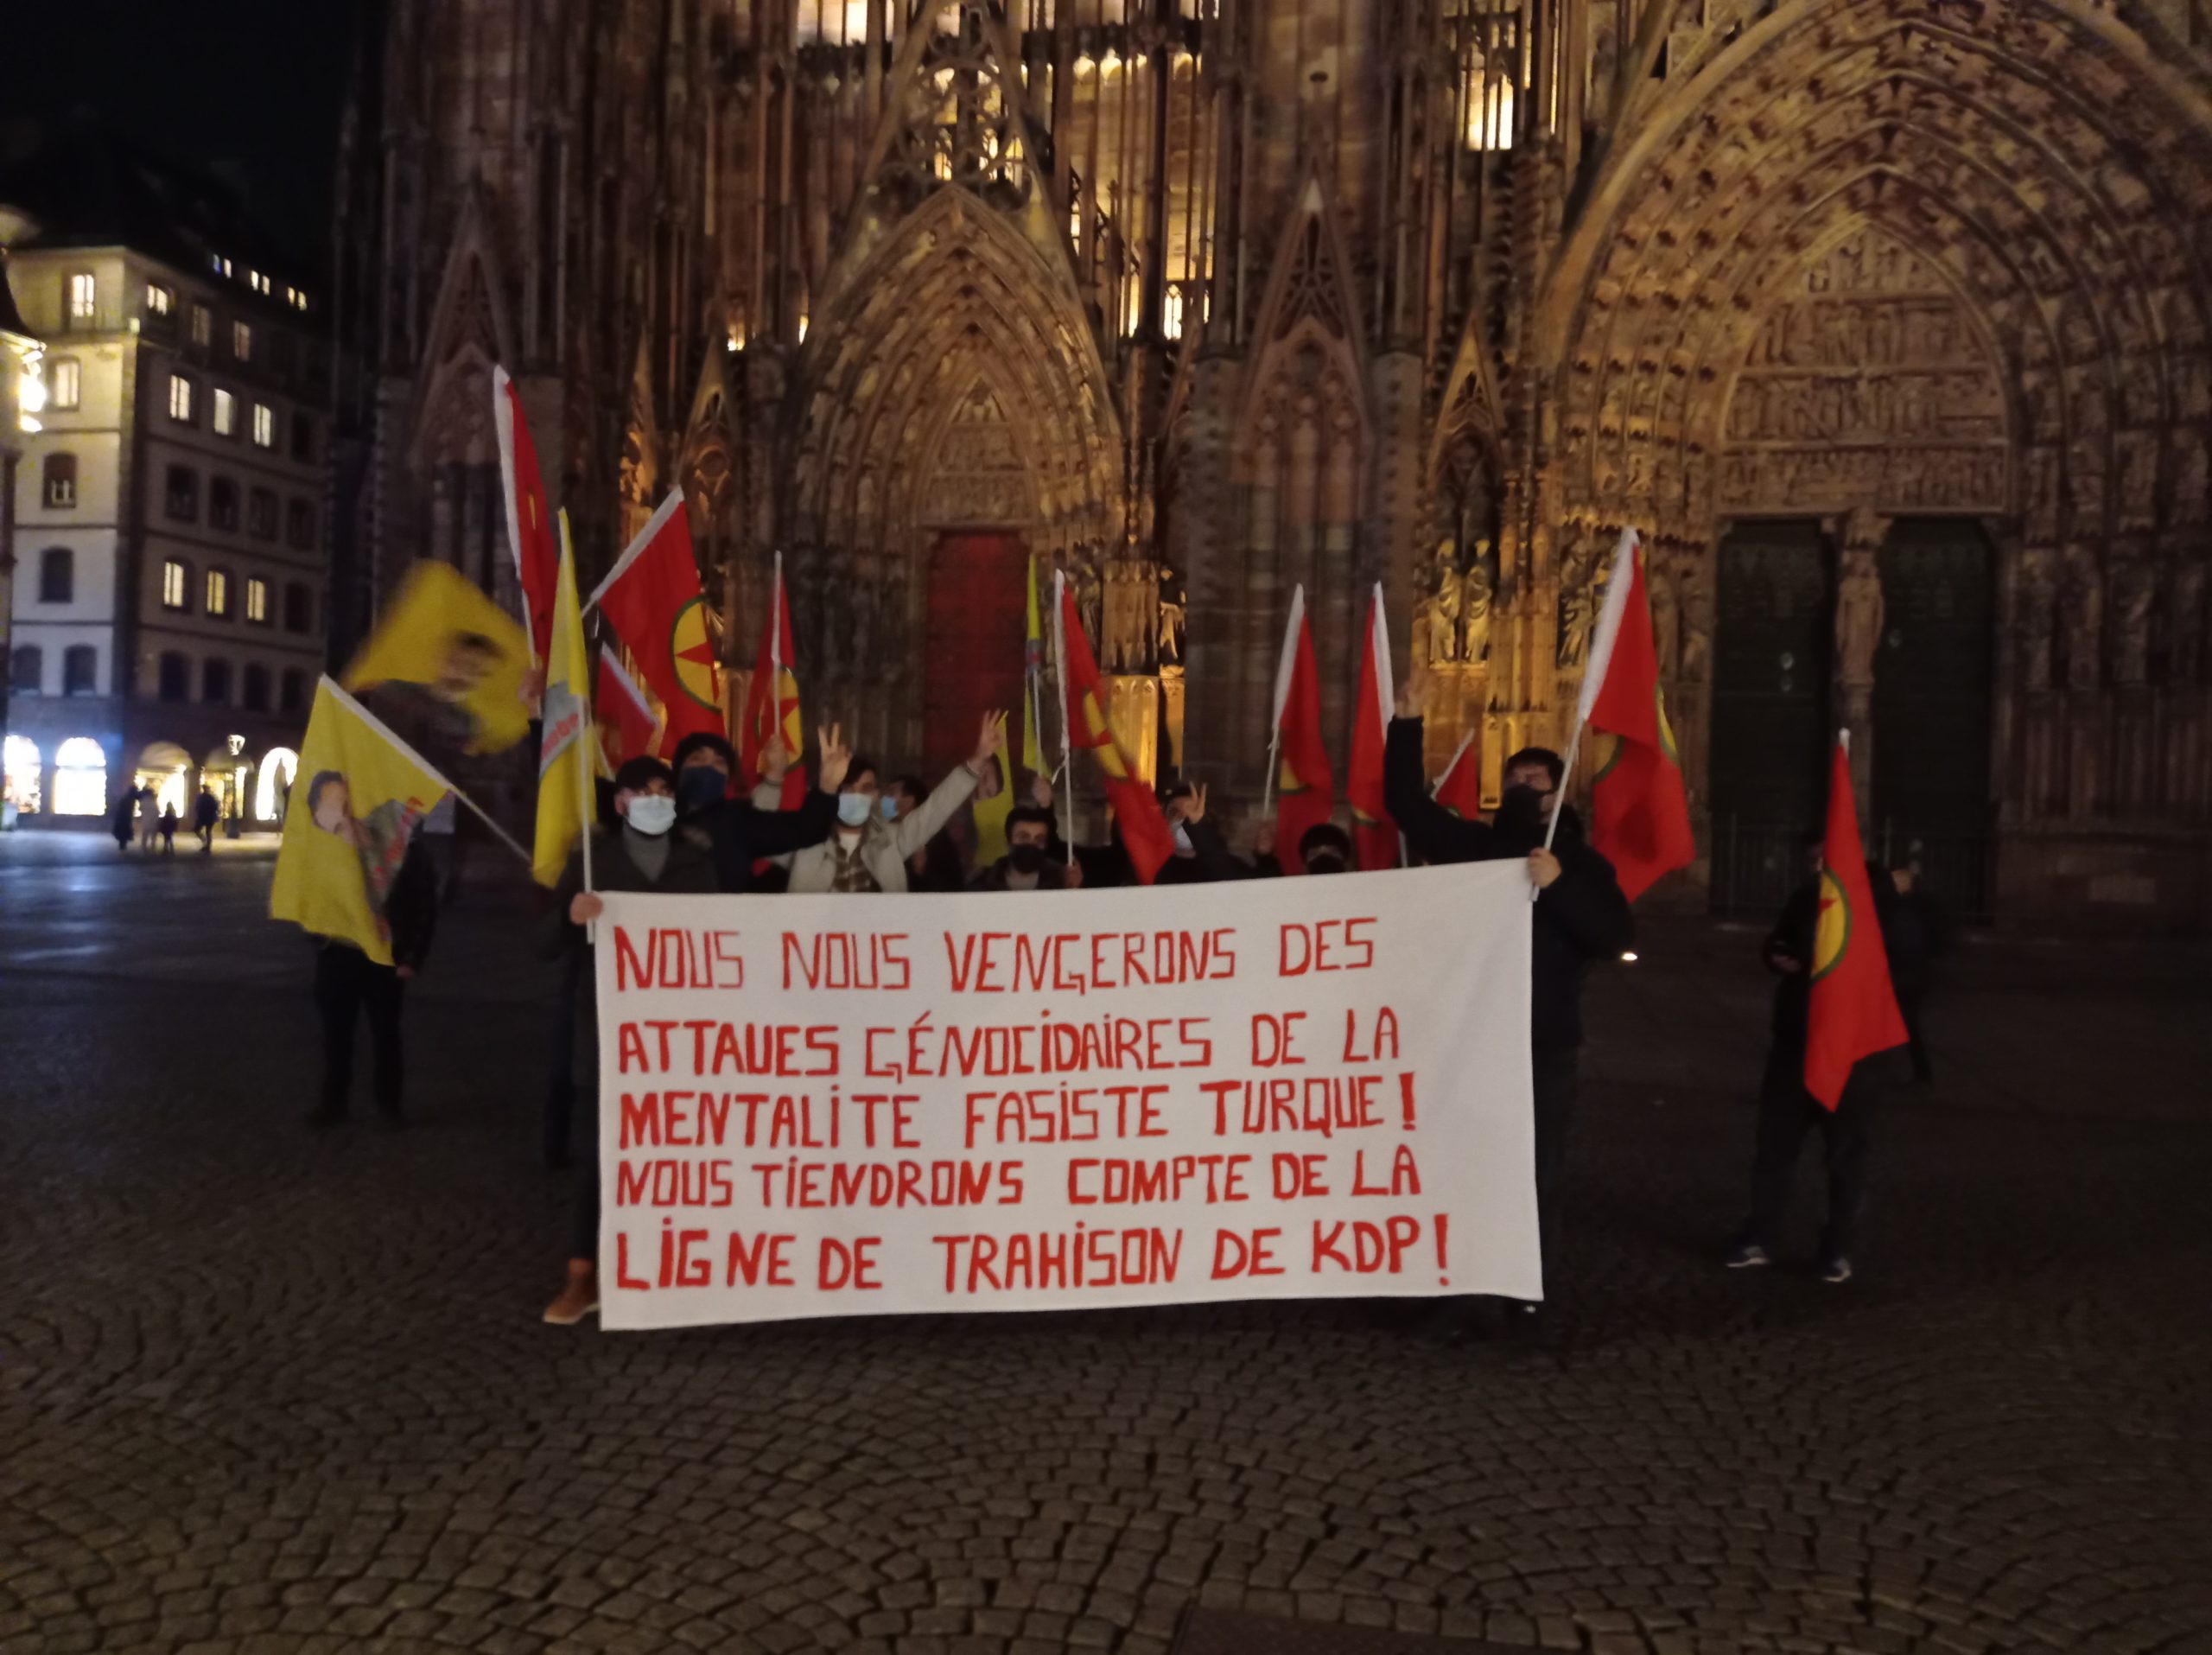 NOUS NOUS VENGERONS DES
ATTAUES GÉNOCIDAIRES DE LA
MENTALITE FASISTE TURQUE!
NOUS TIENDRONS COMPTE DE LA
LIGNE DE TRAHISON DE KDP!